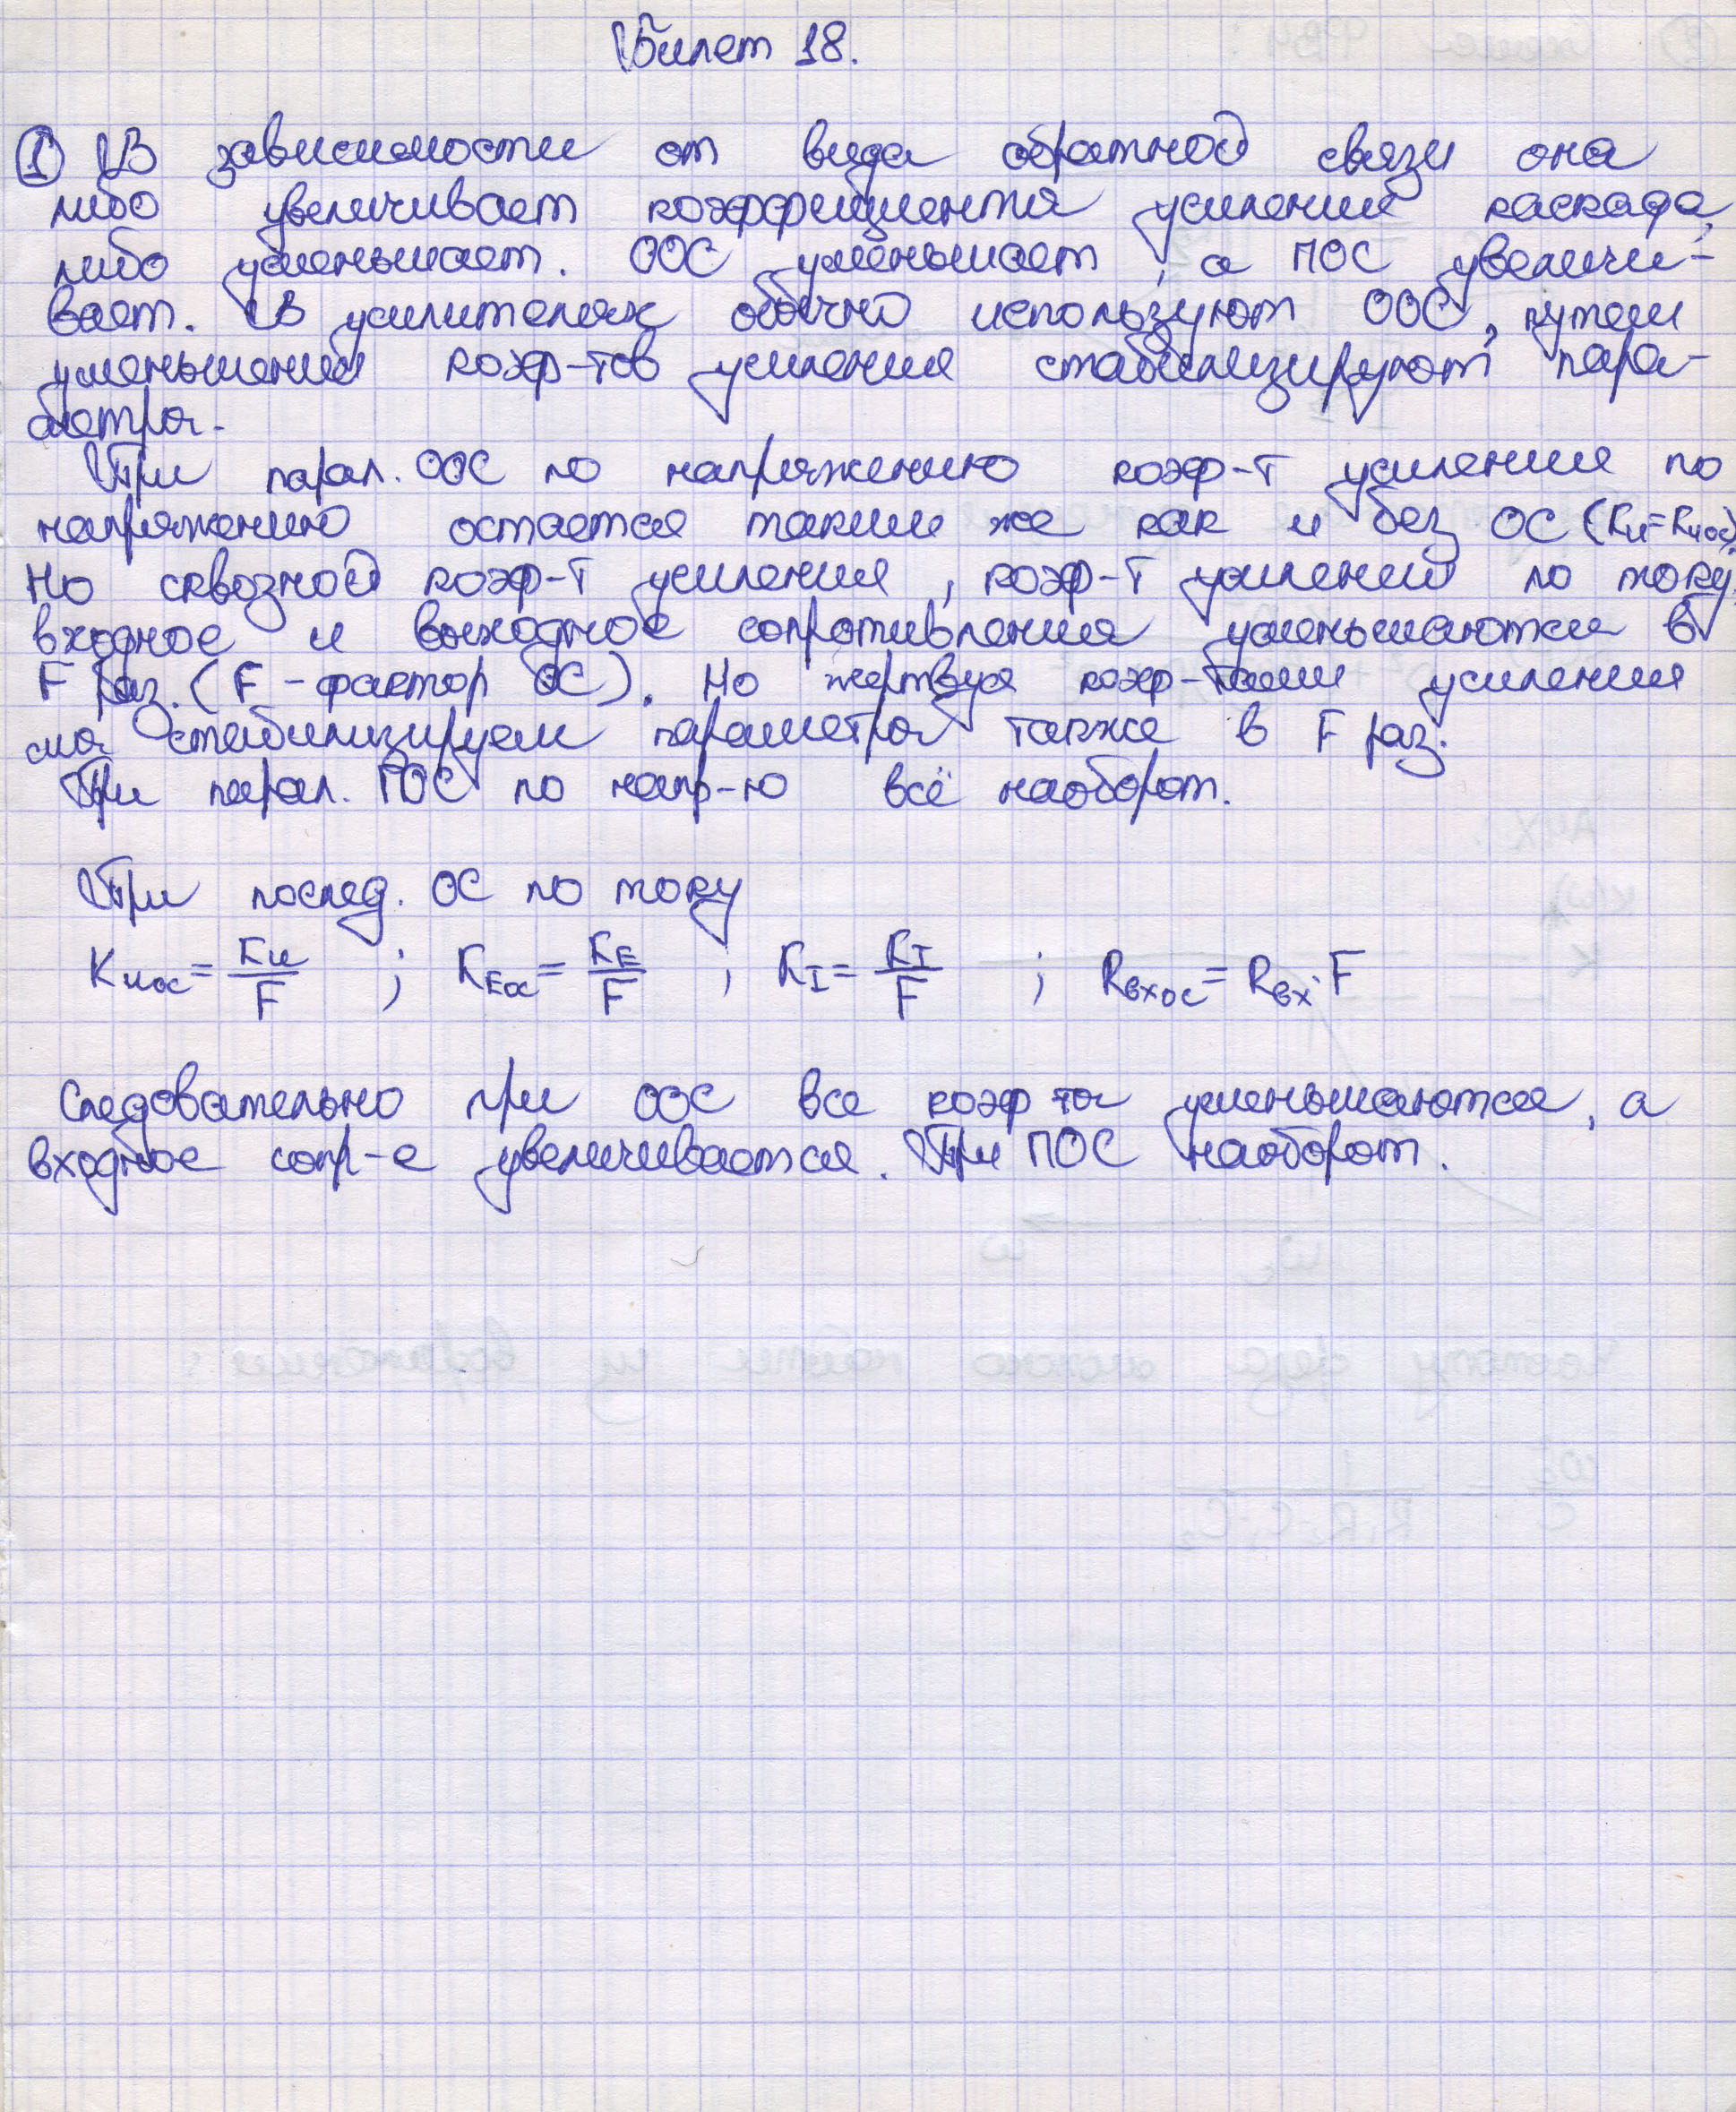 Билет 18.
① В зависимости от вида обратной связи она
либо увеличивает коэффициента усиления каскада,
либо уменьшает. ООС уменьшает, а ПОС увеличи-
вает. В усилителях обычно используют ООС, путем
уменьшения коэф-тов усиления стабилизируют пара-
метры.
При парал. ООС по напряжению коэф-т усиления по
напряжению остается таким же как и без ОС (Ku=Kuос).
Но сквозной коэф-т усиления, коэф-т усиления по току,
входное и выходное сопротивления уменьшаются в
F раз. (F - фактор ОС). Но жертвуя коэф-тами усиления
мы стабилизируем параметры также в F раз.
При парал. ПОС по напр-ю всё наоборот.
При послед. ОС по току
Kuос = Ku/F ; KEос = KE/F ; KI = KI/F ; Rвхос = Rвх·F
Следовательно при ООС все коэф-ты уменьшаются, а
входное сопр-е увеличивается. При ПОС наоборот.